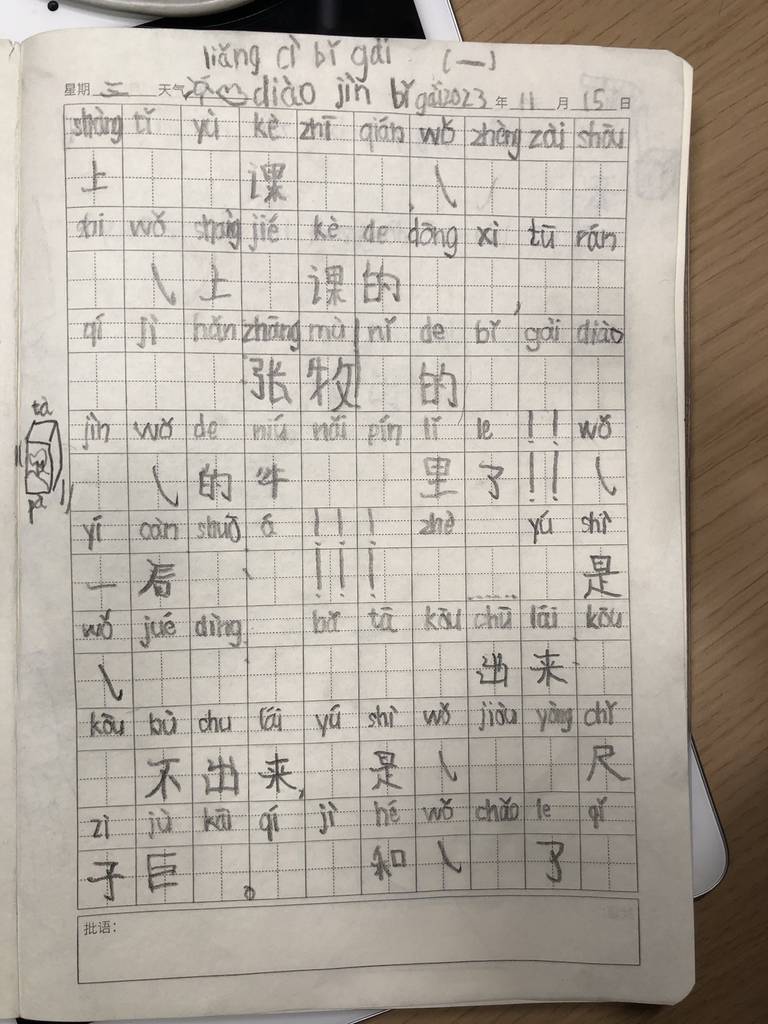 liǎng cì bǐ gài (一)
星期 三 天气 diào jìn bǐ gài 2023 年 11 月 15 日
shàng tǐ yù kè zhī qián wǒ zhèng zài shōu
上 课 ㇏
shi wǒ shàng jié kè de dōng xi tū rán
㇏ 上 课 的 ,
qí jì hǎn zhāng mù nǐ de bǐ gài diào
张 牧 的
jìn wǒ de niú nǎi pín lǐ le ! ! wǒ
㇏ 的 牛 里 了 ! ! ㇏
tà
pà
yí càn shuō á ! ! ! zhè yú shì
一 看 、 ! ! ! …… 是
wǒ jué dìng bǎ tā kōu chū lái kōu
㇏ 出 来
kōu bù chu lái yú shì wǒ jiòu yòng chǐ
不 出 来, 是 ㇏ 尺
zi jù kāi qí jì hé wǒ chǎo le qǐ
子 巨 。 和 ㇏ 了
批语: